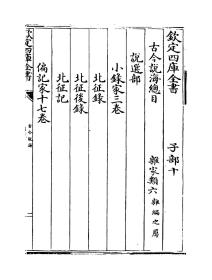 欽定四庫全書　子部十
古今說海總目　雜家類六雜編之屬
說選部
小錄家三卷
北征錄
北征後錄
北征記
偏記家十七卷
欽定四庫全書